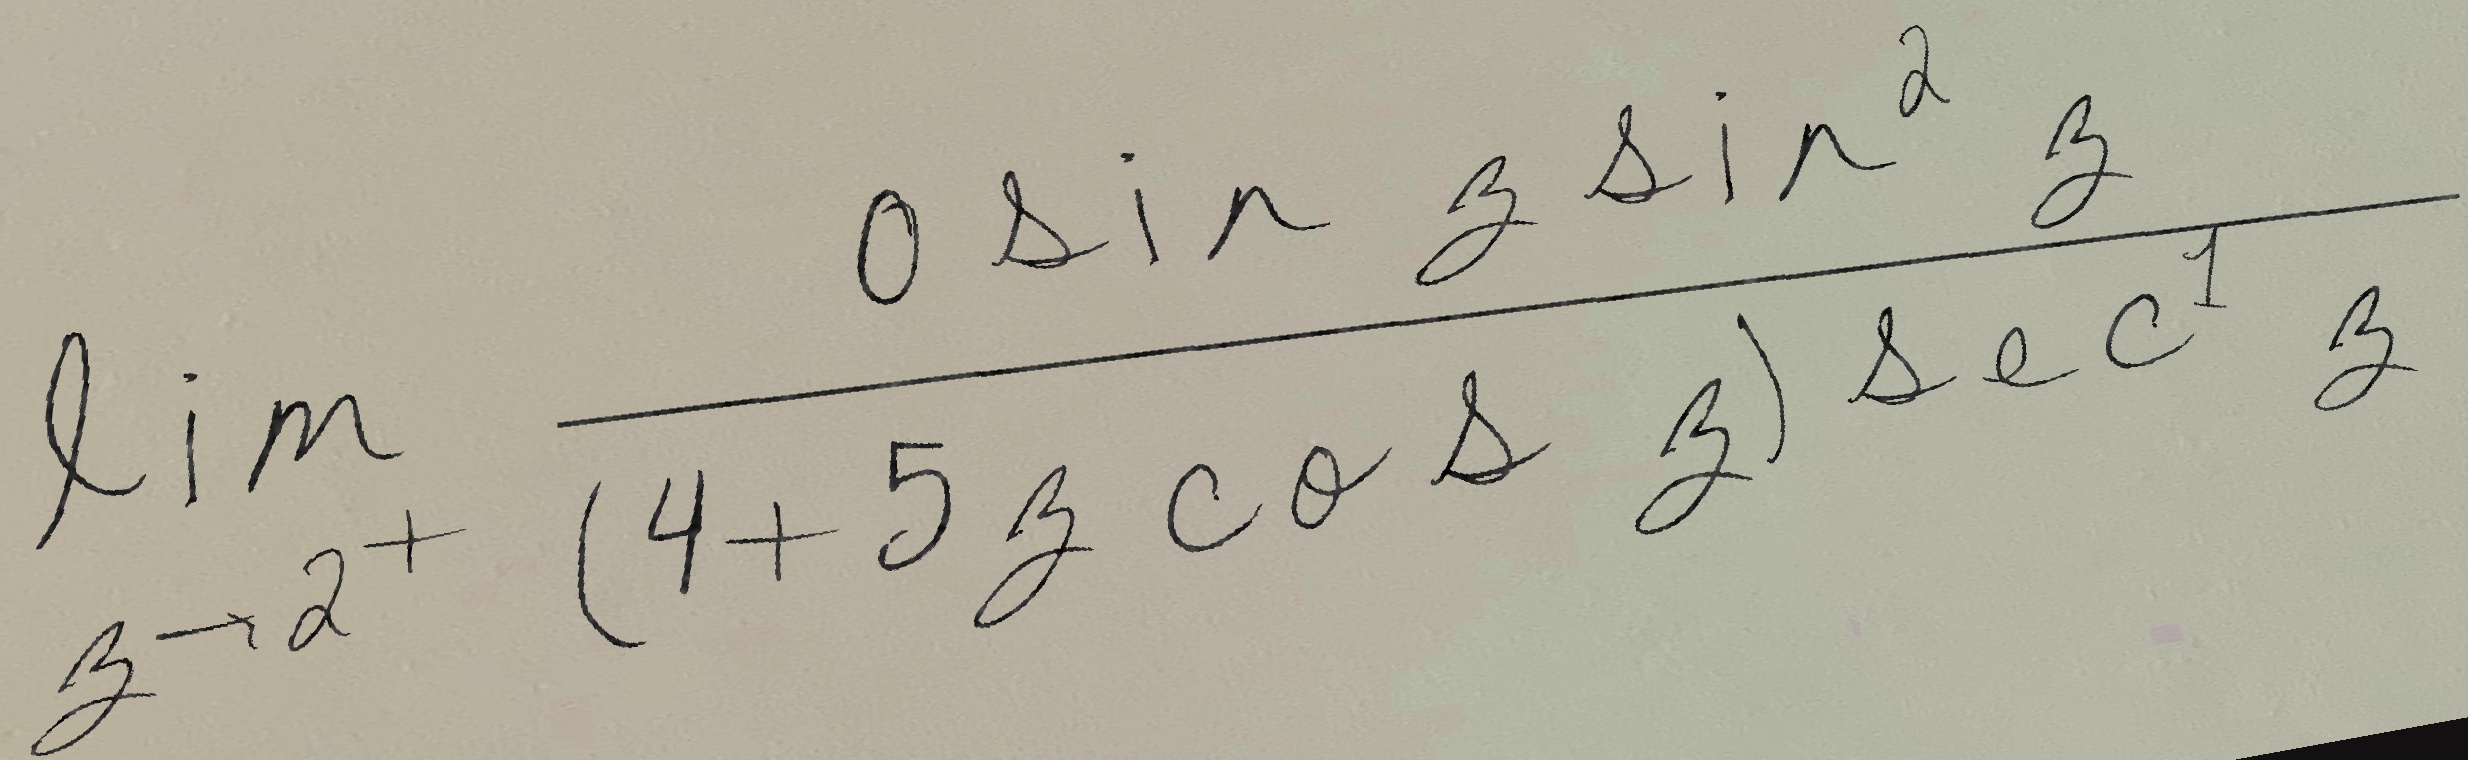 \lim_{z \to 2^+} \frac{0 \sin z \sin^2 z}{(4 + 5 z \cos z) \sec^1 z}